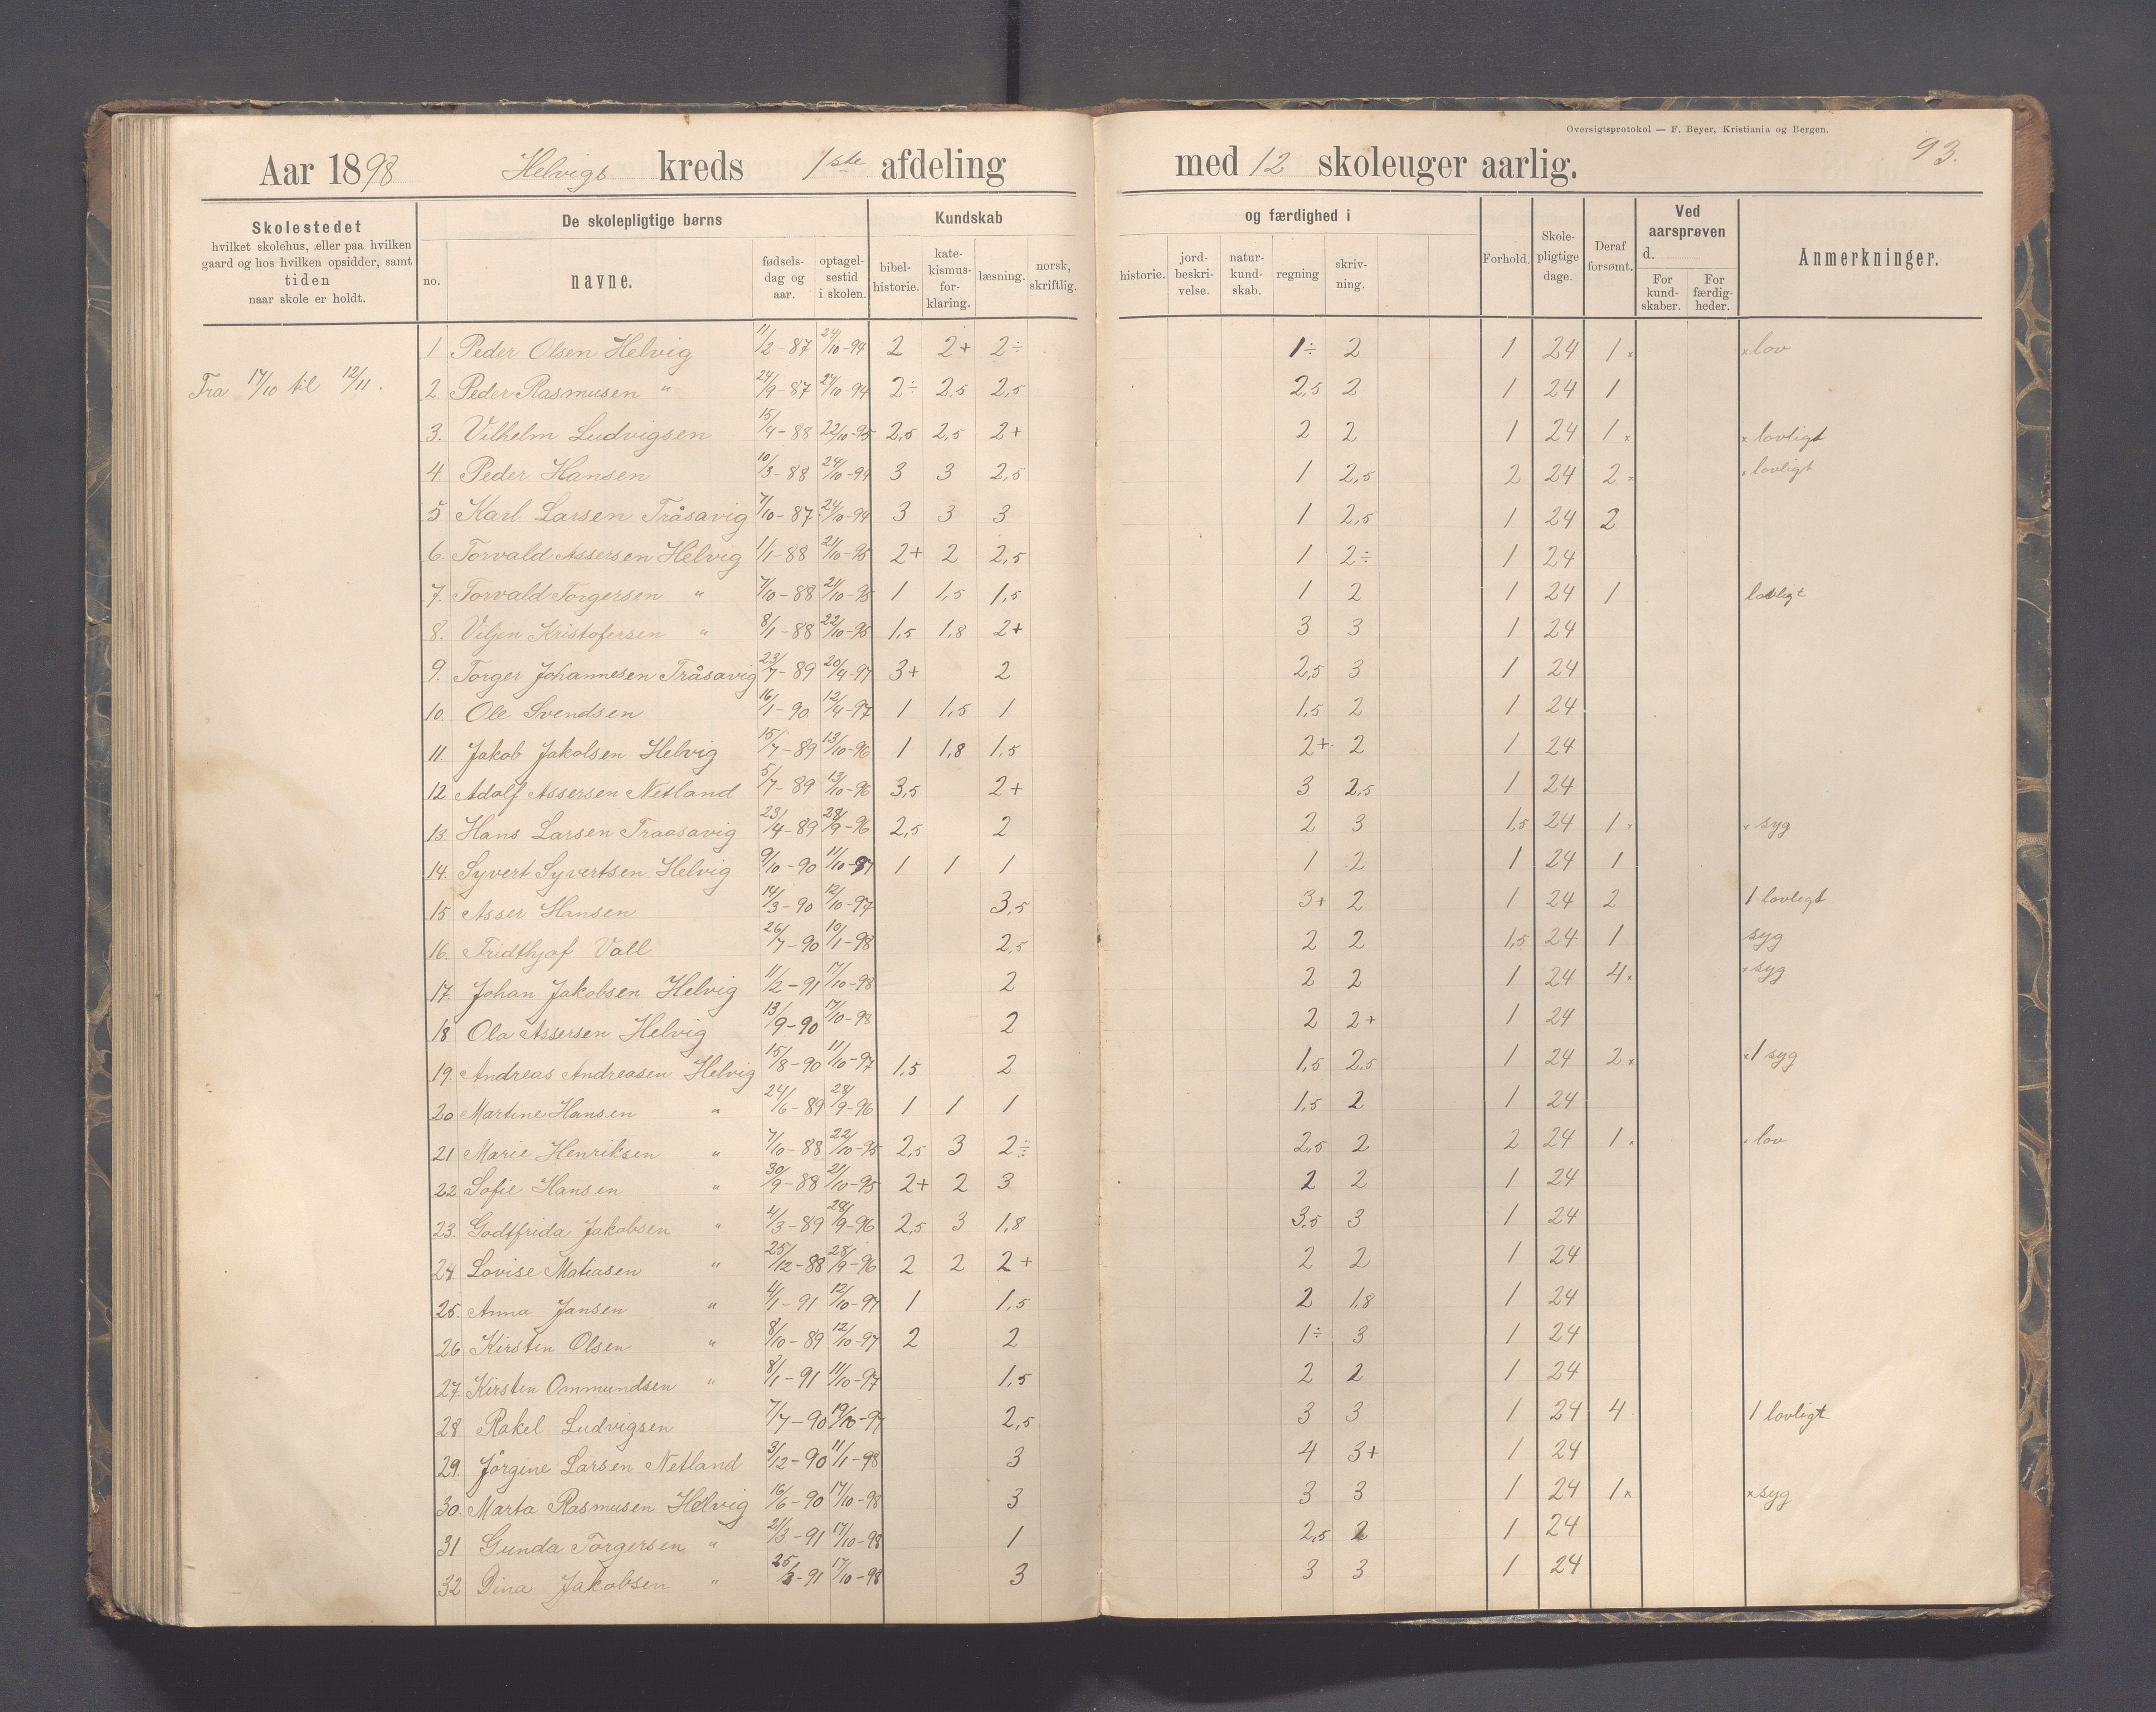 Oversigtsprotokol — F. Beyer, Kristiania og Bergen.
93.
Aar 1898 Helvigs kreds 1ste afdeling med 12 skoleuger aarlig.
Skolestedet hvilket skolehus, eller paa hvilken gaard og hos hvilken opsidder, samt tiden naar skole er holdt.
De skolepligtige børns
no. navne. fødsels-dag og aar. optagel-sestid i skolen.
Kundskab og færdighed i
bibel-historie. kate-kismus-for-klaring. læsning. norsk, skriftlig. historie. jord-beskri-velse. natur-kund-skab. regning skriv-ning.
Forhold. Skole-pligtige dage. Deraf forsømt.
Ved aarsprøven d.
For kund-skaber. For færdig-heder.
Anmerkninger.
Fra 17/10 til 12/11.
1 Peder Olsen Helvig 11/2-87 24/10-94 2 2+ 2÷ 1÷ 2 1 24 1x xlov
2. Peder Rasmusen " 24/9-87 24/10-94 2÷ 2,5 2,5 2,5 2 1 24 1
3. Vilhelm Ludvigsen 15/4-88 22/10-95 2,5 2,5 2+ 2 2 1 24 1x x lovligt
4. Peder Hansen 10/3-88 24/10-94 3 3 2,5 1 2,5 2 24 2x x lovligt
5 Karl Larsen Tråsavig 7/10-87 24/10-94 3 3 3 1 2,5 1 24 2
6. Torvald Assersen Helvig 1/1-88 21/10-95 2+ 2 2,5 1 2÷ 1 24
7. Torvald Torgersen " 7/10-88 21/10-95 1 1,5 1,5 1 2 1 24 1 lovligt
8. Viljen Kristofersen " 8/1-88 22/10-95 1,5 1,8 2+ 3 3 1 24
9. Torger Johannesen Tråsavig 23/7-89 20/4-97 3+ 2 2,5 3 1 24
10. Ole Svendsen 16/1-90 12/4-97 1 1,5 1 1,5 2 1 24
11. Jakob Jakobsen Helvig 15/7-89 13/10-96 1 1,8 1,5 2+ 2 1 24
12 Adolf Assersen Netland 5/7-89 13/10-96 3,5 2+ 3 2,5 1 24
13. Hans Larsen Traasavig 23/4-89 28/9-96 2,5 2 2 3 1,5 24 1x x syg
14. Syvert Syvertsen Helvig 9/10-90 11/10-97 1 1 1 1 2 1 24 1
15 Asser Hansen 14/3-90 12/10-97 3,5 3+ 2 1 24 2 1 lovligt
16. Fridthjof Vall 26/7-90 10/1-98 2,5 2 2 1,5 24 1 syg
17. Johan Jakobsen Helvig 11/2-91 17/10-98 2 2 2 1 24 4x x syg
18 Ola Assersen Helvig 13/9-90 17/10-98 2 2 2+ 1 24
19. Andreas Andreasen Helvig 15/8-90 11/10-97 1,5 2 1,5 2,5 1 24 2x x1 syg
20 Martine Hansen " 24/6-89 28/9-96 1 1 1 1,5 2 1 24
21 Marie Henriksen " 7/10-88 22/10-95 2,5 3 2÷ 2,5 2 2 24 1x x lov
22 Sofie Hansen " 30/9-88 21/10-95 2+ 2 3 2 2 1 24
23. Godtfrida Jakobsen " 4/3-89 28/9-96 2,5 3 1,8 3,5 3 1 24
24 Lovise Matiasen " 25/12-88 28/9-96 2 2 2+ 2 2 1 24
25. Anna Jansen " 4/1-91 12/10-97 1 1,5 2 1,8 1 24
26 Kirsten Olsen " 8/10-89 12/10-97 2 2 1÷ 3 1 24
27. Kirsten Ommundsen " 8/1-91 11/10-97 1,5 2 2 1 24
28 Rakel Ludvigsen 7/7-90 19/10-97 2,5 3 3 1 24 4 1 lovligt
29. Jörgine Larsen Netland 3/12-90 11/1-98 3 4 3+ 1 24
30. Marta Rasmusen Helvig 16/6-90 17/10-98 3 3 3 1 24 1x xsyg
31 Gunda Torgersen " 21/3-91 17/10-98 1 2,5 2 1 24
32 Dina Jakobsen " 25/-91 17/10-98 3 3 3 1 24